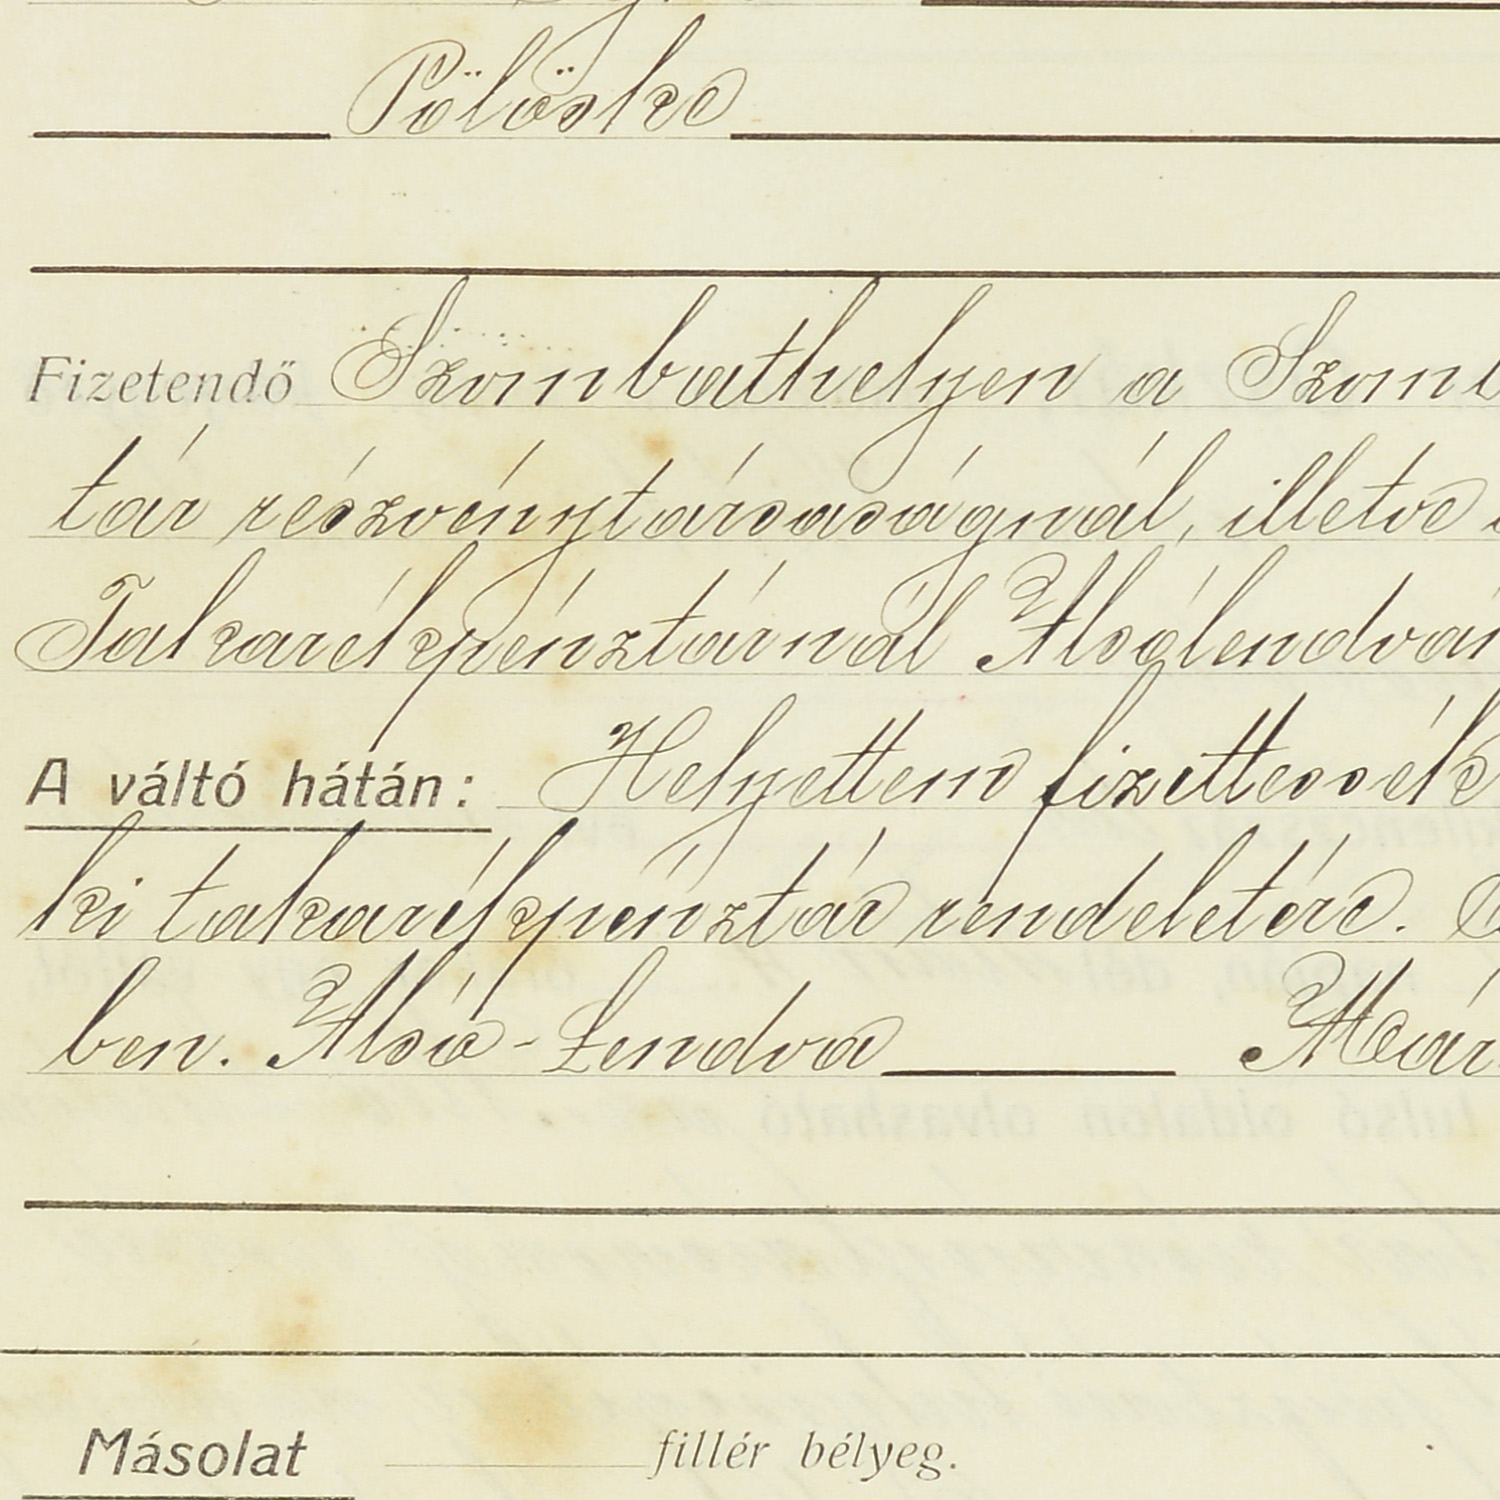 Pölöske
Fizetendő Szombathelyen a Szomb
tár részvénytársaságnál, illetve
Takarékpénztárnál Alsólendván
A váltó hátán: Helyettem fizettessék
ki takarékpénztár rendeletére.
ben. Alsó-Lendva Már
Másolat fillér bélyeg.